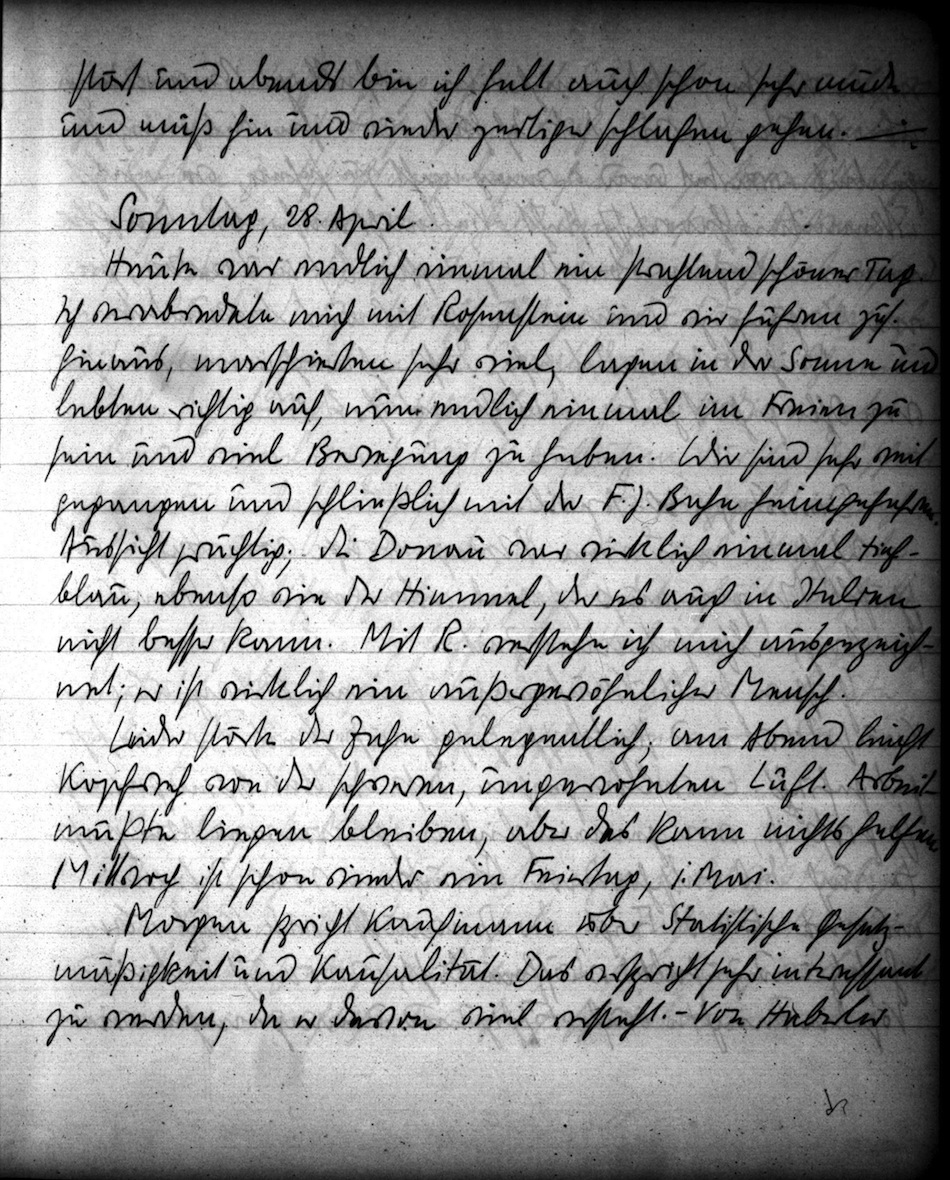 stört und abends bin ich halt auch schon sehr müde
und muß hin und wieder zeitiger schlafen gehen. —
Sonntag, 28. April.
Heute war endlich einmal ein strahlend schöner Tag.
Ich verabredete mich mit Rosenstein und wir fuhren zus.
hinaus, marschierten sehr viel, lagen in der Sonne und
lebten richtig auf, nun endlich einmal im Freien zu
sein und viel Bewegung zu haben. Wir sind sehr weit
gegangen und schließlich mit der F. J. Bahn heimgefahren.
Aussicht prächtig; die Donau war wirklich einmal tief-
blau, ebenso wie der Himmel, der es auch in Italien
nicht besser kann. Mit R. verstehe ich mich ausgezeich-
net; er ist wirklich ein außergewöhnlicher Mensch.
Leider störte der Zahn gelegentlich; am Abend leicht
Kopfweh von der schweren, ungewohnten Luft. Arbeit
mußte liegen bleiben, aber das kann nichts helfen.
Mittwoch ist schon wieder ein Feiertag, 1. Mai.
Morgen spricht Kaufmann über Statistische Gesetz-
mäßigkeit und Kausalität. Das verspricht sehr interessant
zu werden, da er davon viel versteht. – Von Haberler